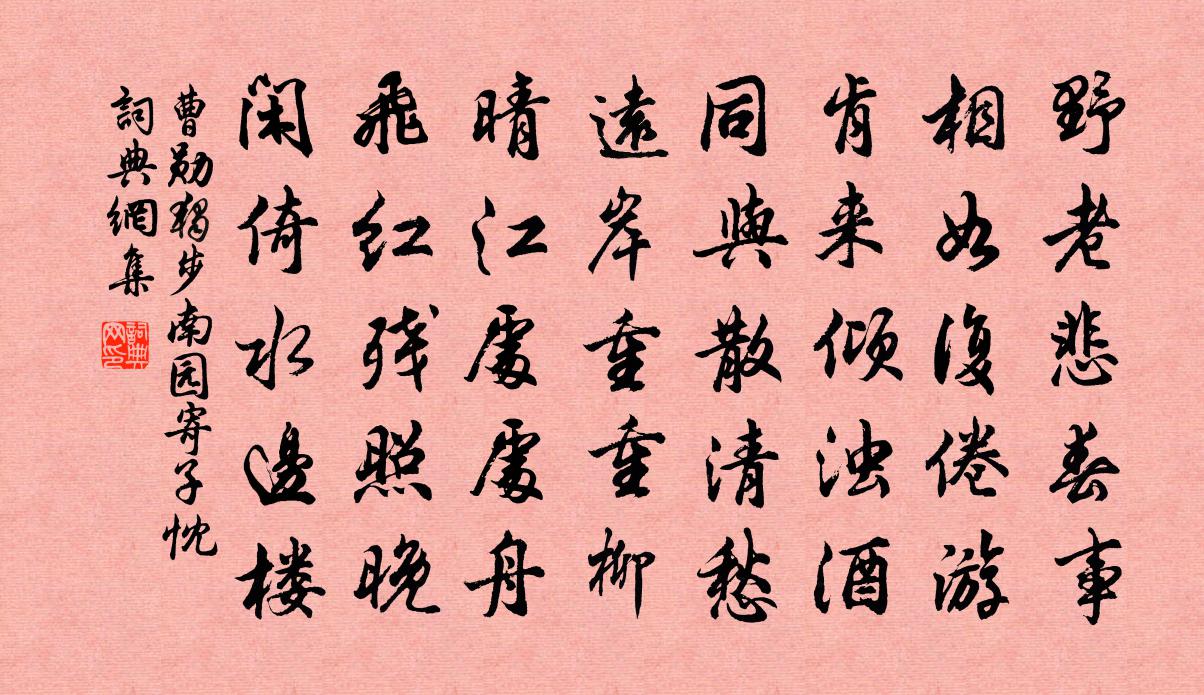 野老悲春事
相如復倦游
肯来倾浊酒
同與散清愁
遠岸重重柳
晴江處處舟
飛红残照晚
闲倚水邊楼
曹勋独步南园寄子忱
詞典網集
詞典网印